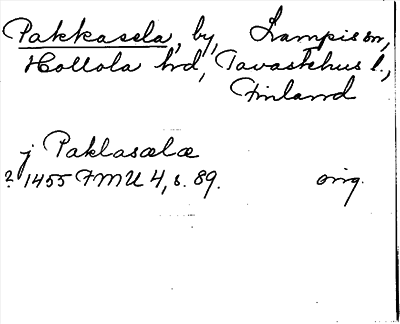 Pakkasela, by, Lampis sn,
Hollola hd, Tavastehus l.,
Finland
j Paklasælæ
? 1455 FMU 4, s. 89. orig.